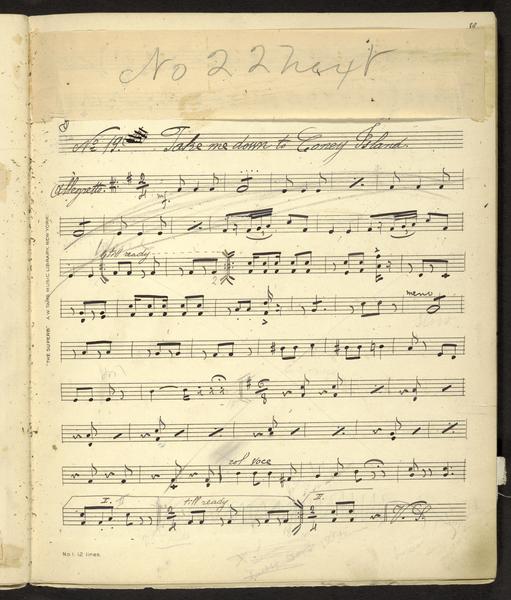 No 22 next
No 19. Take me down to Coney Island.
Allegretto.
mf.
till ready
meno
col voce
II. till ready II.
V. S.
"THE SUPERB" A.W. TAMS MUSIC LIBRARY, NEW YORK.
No 1. 12 lines.